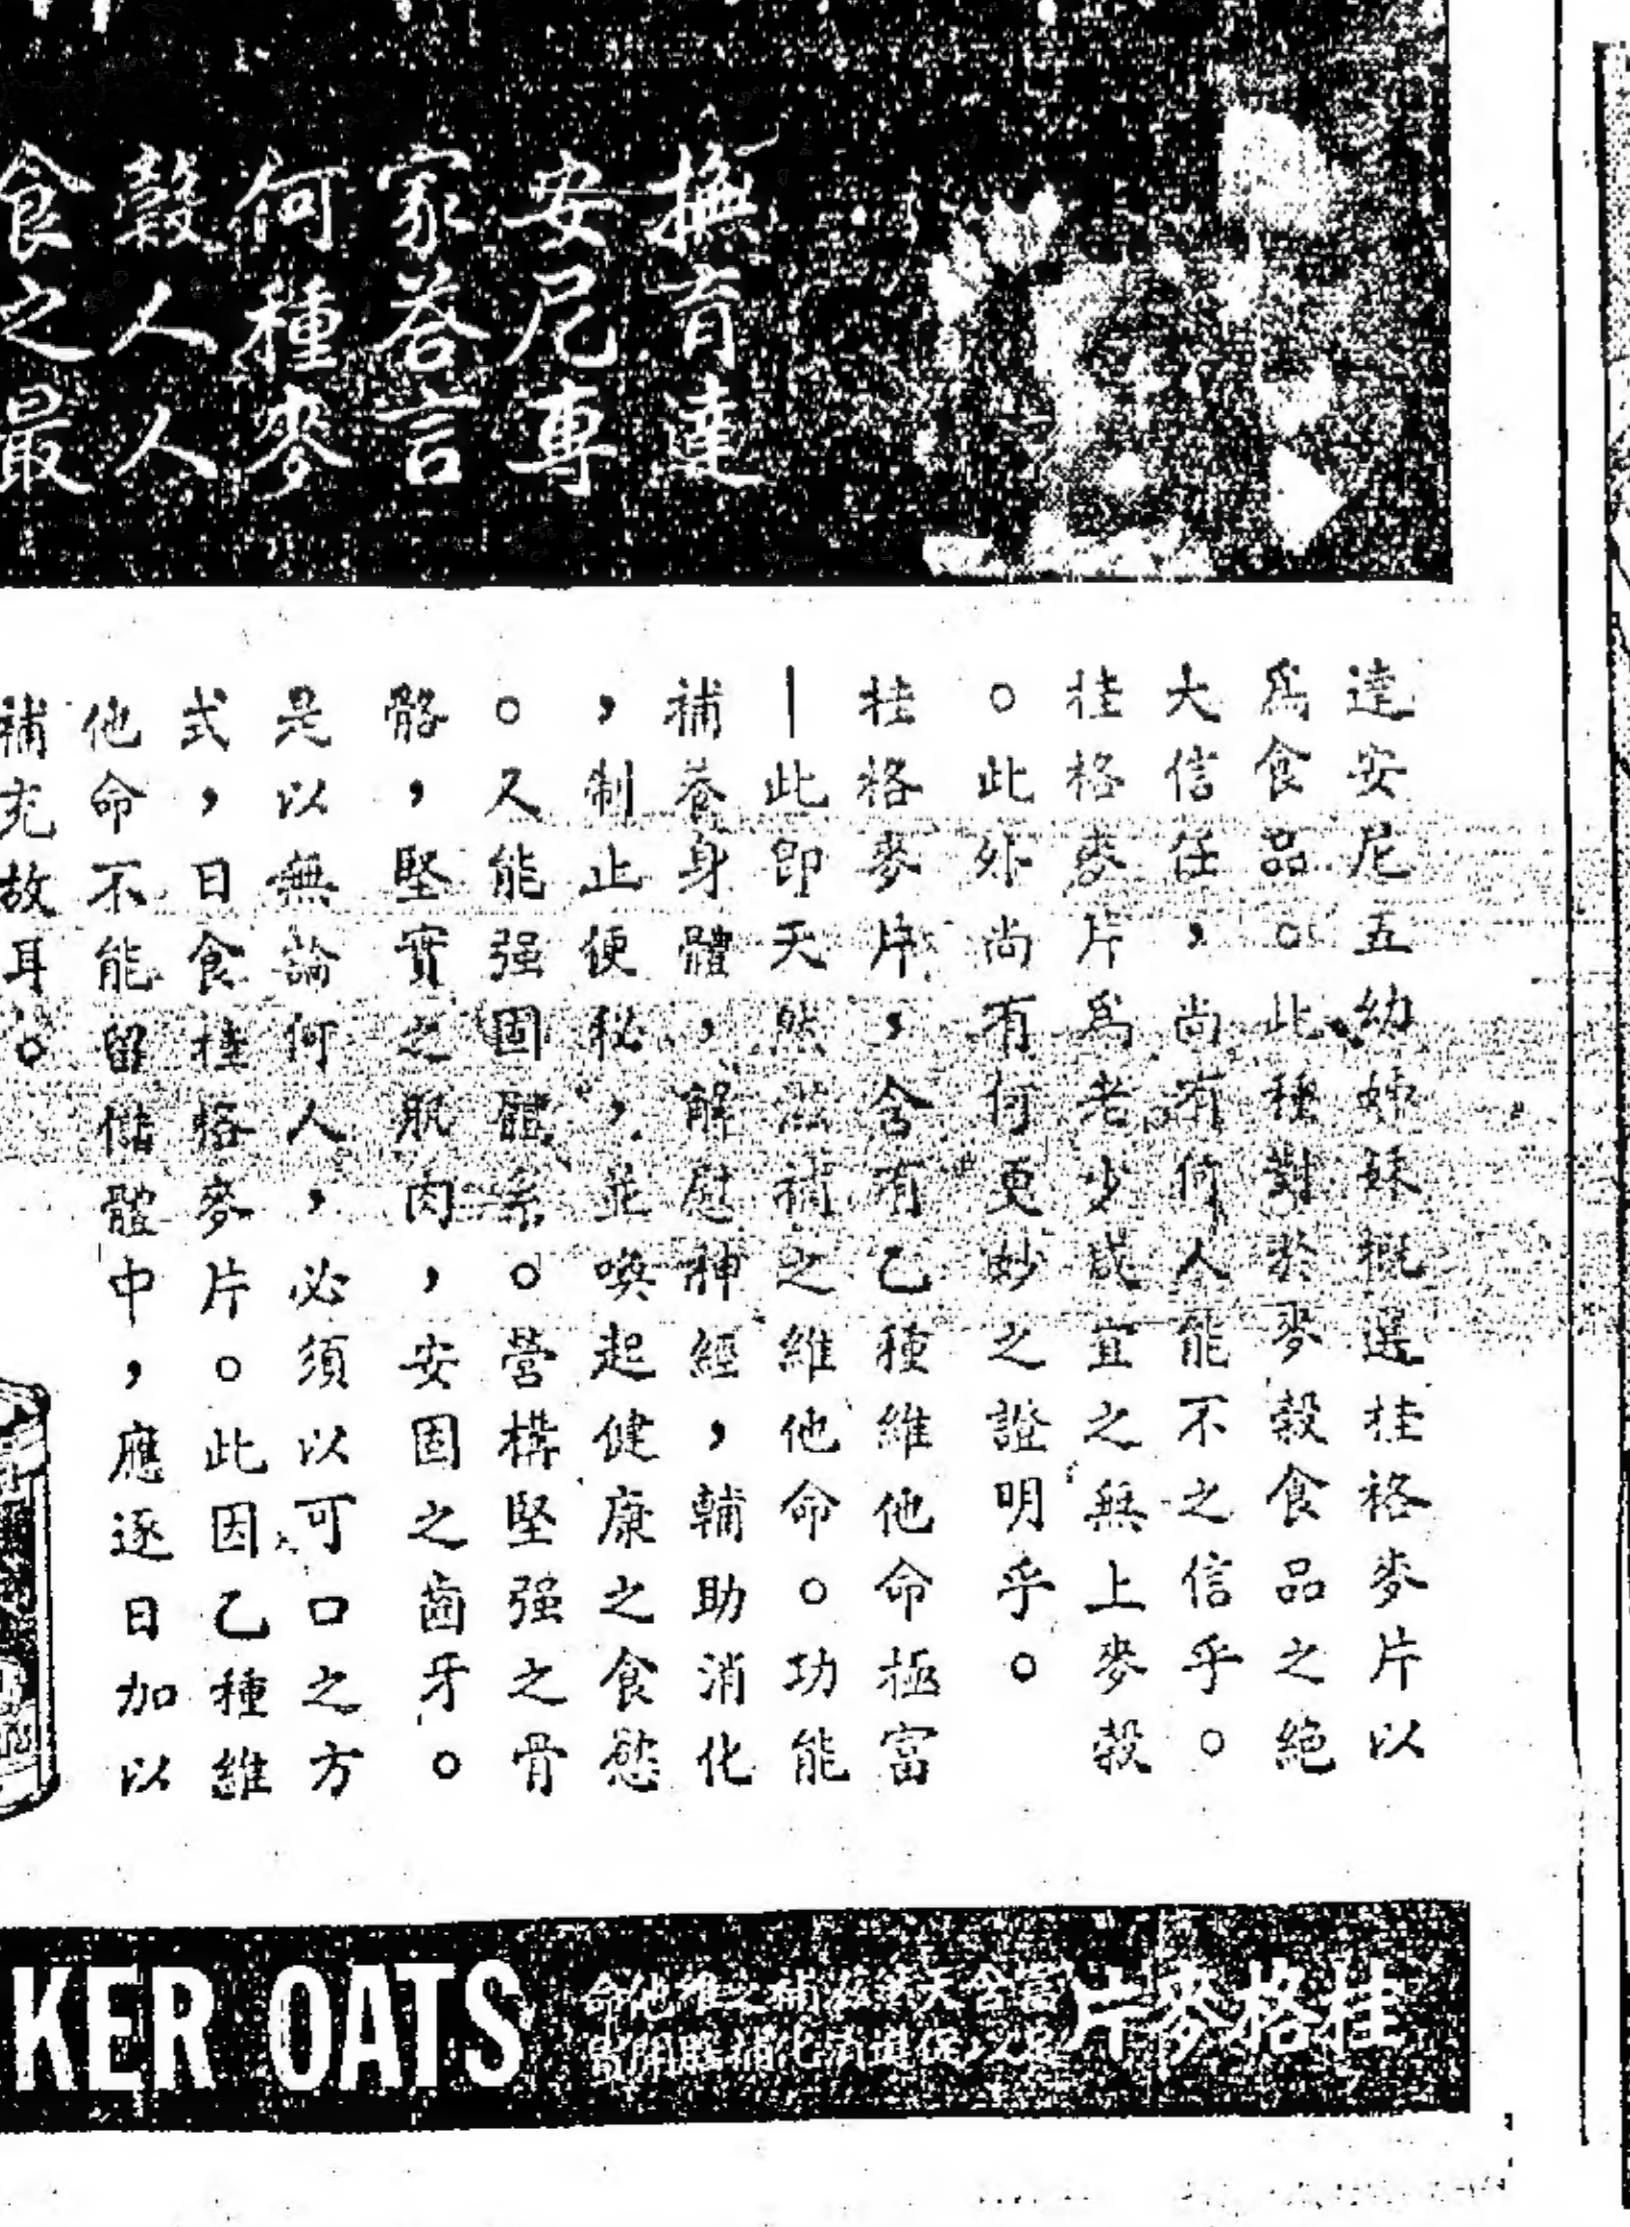 撫育達
安尼專
家荅言
何種麥
穀人人
食之最
達安尼五幼姊妹概選桂格麥片以
爲食品。此種對於麥穀食品之絕
大信任，尚有何人能不之信乎。
桂格麥片爲老少咸宜之無上麥穀
。此外尚有何更妙之證明乎。
桂格麥片，含有乙種維他命極富
—此卽天然滋補之維他命。功能
補養身體，解慰神經，輔助消化
，制止便秘，並喚起健康之食慾
。又能强固體系。營構堅强之骨
骼，堅實之肌肉，安固之齒牙。
是以無論何人，必須以可口之方
式，日食桂格麥片。此因乙種維
他命不能留儲體中，應逐日加以
補充故耳。
桂格麥片
富含天然滋補之維他命
足以促進消化補腦開胃
KER OATS